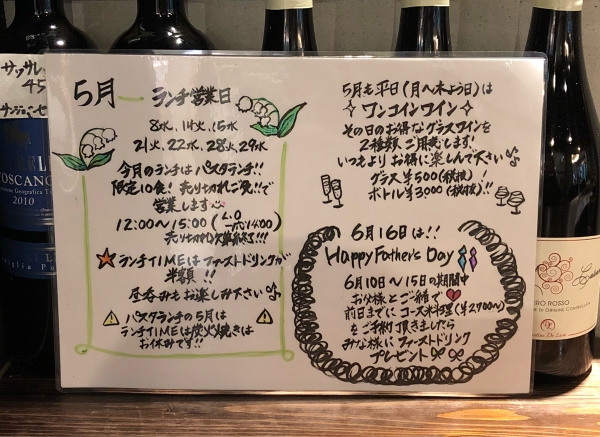 サッサレ
45
サンジョベーゼ
TOSCANO
2010
5月
ランチ営業日
8水、14火、15水
21火、22水、28火、29水
今月のランチはパスタランチ!!
限定10食！売り切れご免!!で
営業します
12:00〜15:00 (L.O 14:00)
売り切れ次第終了!!!
ランチTIMEはファーストドリンクが
半額!!
昼呑みもお楽しみ下さい♪
パスタランチの5月は
ランチTIMEは炭火焼きは
お休みです!!
5月も平日(月〜木よう日)は
ワンコインワイン
その日のお得なグラスワインを
2種類ご用意します!
いつもよりお得に楽しんで下さい♪
グラス¥500(税抜)!
ボトル¥3,000(税抜)!!
6月16日は!!
Happy Father's Day
6月10日〜15日の期間中
お父様とご一緒で
前日までにコース料理(¥2,700〜)
をご予約頂きましたら
みな様にファーストドリンク
プレゼント
CIRÒ ROSSO
DI ORIGINE CONTROLLATA